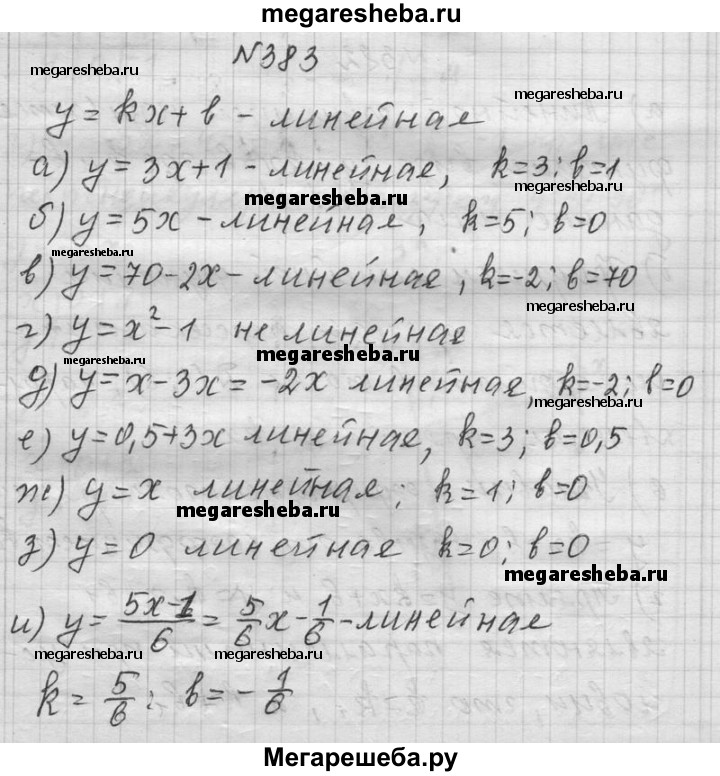 megaresheba.ru
N383
megaresheba.ru
megaresheba.ru
y = kx + b - линейная
а) y = 3x+1 - линейная, k=3; b=1
megaresheba.ru
б) y = 5x - линейная, k=5; b=0
megaresheba.ru
в) y = 70-2x - линейная, k=-2; b=70
megaresheba.ru
г) y = x² - 1 не линейная
megaresheba.ru
megaresheba.ru
д) y = x - 3x = -2x линейная, k=-2; b=0
megaresheba.ru
е) y = 0,5+3x линейная, k=3; b=0,5
ж) y = x линейная; k=1; b=0
megaresheba.ru
з) y = 0 линейная k=0; b=0
megaresheba.ru
и) y = (5x-1)/6 = 5/6 x - 1/6 - линейная
megaresheba.ru
megaresheba.ru
k = 5/6; b = - 1/6
Мегарешеба.ру